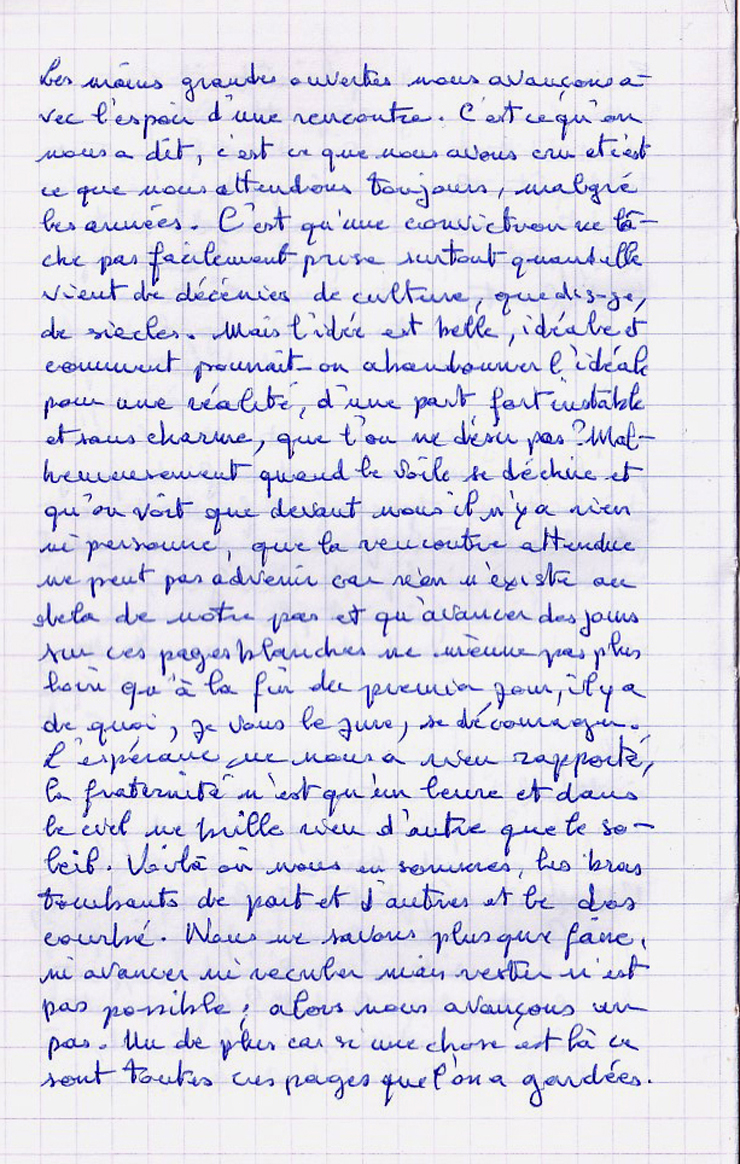 Les mains grandes ouvertes nous avançons a-
vec l'espoir d'une rencontre. C'est ce qu'on
nous a dit, c'est ce que nous avons cru et c'est
ce que nous attendons toujours, malgré
les années. C'est qu'une conviction ne lâ-
che pas facilement prise surtout quand elle
vient de décénies de culture, que dis-je,
de siècles. Mais l'idée est belle, idéale et
comment pourrait-on abandonner l'idéale
pour une réalité, d'une part, fort instable
et sans charme, que l'on ne désire pas? Mal-
heureusement quand le voile se déchire et
qu'on voit que devant nous il n'y a rien
ni personne, que la rencontre attendue
ne peut pas advenir car rien n'existe au
dela de notre pas et qu'avancer des jours
sur ces pages blanches ne mène pas plus
loin qu'à la fin du premier jour, il y a
de quoi, je vous le jure, se décourager.
L'espérance ne nous a rien rapporté,
la fraternité n'est qu'un leurre et dans
le ciel ne brille rien d'autre que le so-
leil. Voilà où nous en sommes, les bras
tombants de part et d'autres et le dos
courbé. Nous ne savons plus que faire,
ni avancer ni reculer mais rester n'est
pas possible; alors nous avançons un
pas. Un de plus car si une chose est là ce
sont toutes ces pages que l'on a gardées.